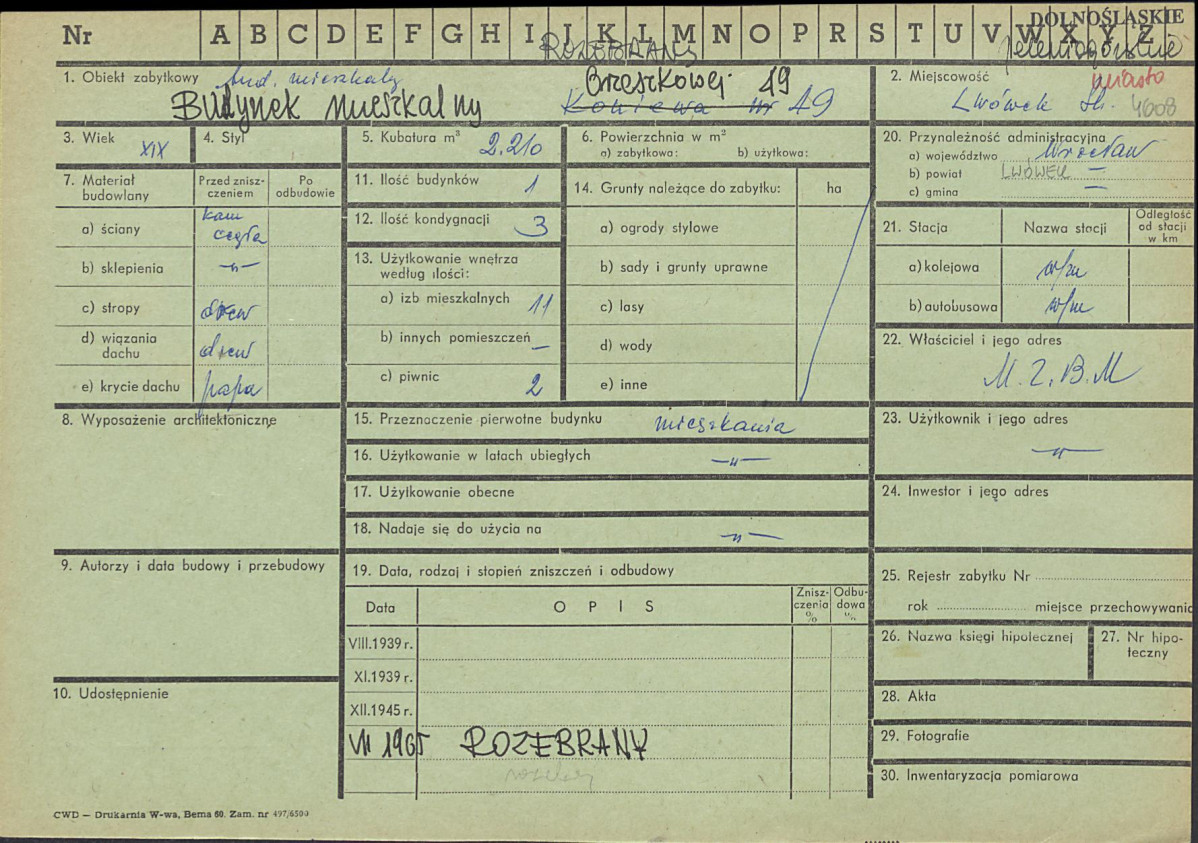 DOLNOŚLĄSKIE
Nr A B C D E F G H I J K L M N O P R S T U V W X Y Z
ROZEBRANY
Jeleniogórskie
1. Obiekt zabytkowy bud. mieszkalny
Budynek mieszkalny
Brzeskowej 49
Koniewa Nr 49
2. Miejscowość miasto
Lwówek Śl. 4608
3. Wiek XIX
4. Styl
5. Kubatura m³ 2.210
6. Powierzchnia w m²
a) zabytkowa: b) użytkowa:
20. Przynależność administracyjna
a) województwo Wrocław
b) powiat LWÓWEK —
c) gmina —
7. Materiał budowlany
Przed zniszczeniem
Po odbudowie
a) ściany kam cegła
b) sklepienia —„—
c) stropy drew
d) wiązania dachu drew
e) krycie dachu papa
11. Ilość budynków 1
12. Ilość kondygnacji 3
13. Użytkowanie wnętrza
według ilości:
a) izb mieszkalnych 11
b) innych pomieszczeń —
c) piwnic 2
14. Grunty należące do zabytku: ha
a) ogrody stylowe
b) sady i grunty uprawne
c) lasy
d) wody
e) inne
21. Stacja Nazwa stacji Odległość od stacji w km
a) kolejowa w/m
b) autobusowa w/m
22. Właściciel i jego adres
M.Z.B.M
8. Wyposażenie architektoniczne
15. Przeznaczenie pierwotne budynku mieszkania
16. Użytkowanie w latach ubiegłych —„—
17. Użytkowanie obecne
18. Nadaje się do użycia na —„—
23. Użytkownik i jego adres
—„—
24. Inwestor i jego adres
9. Autorzy i data budowy i przebudowy
19. Data, rodzaj i stopień zniszczeń i odbudowy
Data OPIS Zniszczenia % Odbudowa %
VIII.1939 r.
XI.1939 r.
XII.1945 r.
VII 1965 ROZEBRANY
25. Rejestr zabytku Nr
rok miejsce przechowywania
26. Nazwa księgi hipotecznej
27. Nr hipoteczny
10. Udostępnienie
28. Akta
29. Fotografie
30. Inwentaryzacja pomiarowa
CWD — Drukarnia W-wa, Bema 60. Zam. nr 497/6500